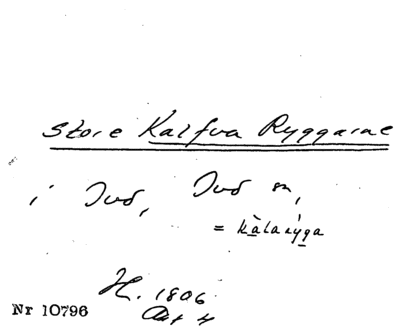 Store Kalfva Ryggarne
i Jud, Jud sn,
= kàlarýga
H. 1806
Akt 4
Nr 10796